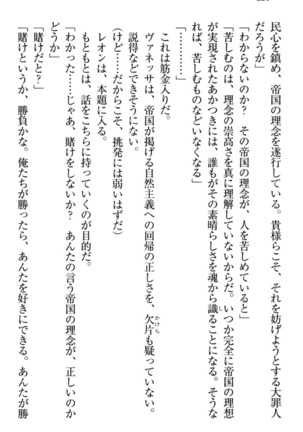 民心を鎮め、帝国の理念を遂行している。貴様らこそ、それを妨げようとする大罪人
だろうが」
「わからないのか？　その帝国の理念が、人を苦しめていると」
「苦しむのは、理念の崇高さを真に理解していないからだ。いつか完全に帝国の理想
が実現されたあかつきには、誰もがその素晴らしさを魂から識ることになる。そうな
れば、苦しむものなどいなくなる」
「…………」
これは筋金入りだ。
ヴァネッサは、帝国が掲げる自然主義への回帰の正しさを、欠片も疑っていない。
説得などできそうにない。
（けど……だからこそ、挑発には弱いはずだ）
レオンは、本題に入る。
もともとは、話をこちらに持っていくのが目的だ。
「わかった……じゃあ、賭けをしないか？　あんたの言う帝国の理念が、正しいのか
どうか」
「賭けだと？」
「賭けというか、勝負かな。俺たちが勝ったら、あんたを好きにできる。あんたが勝